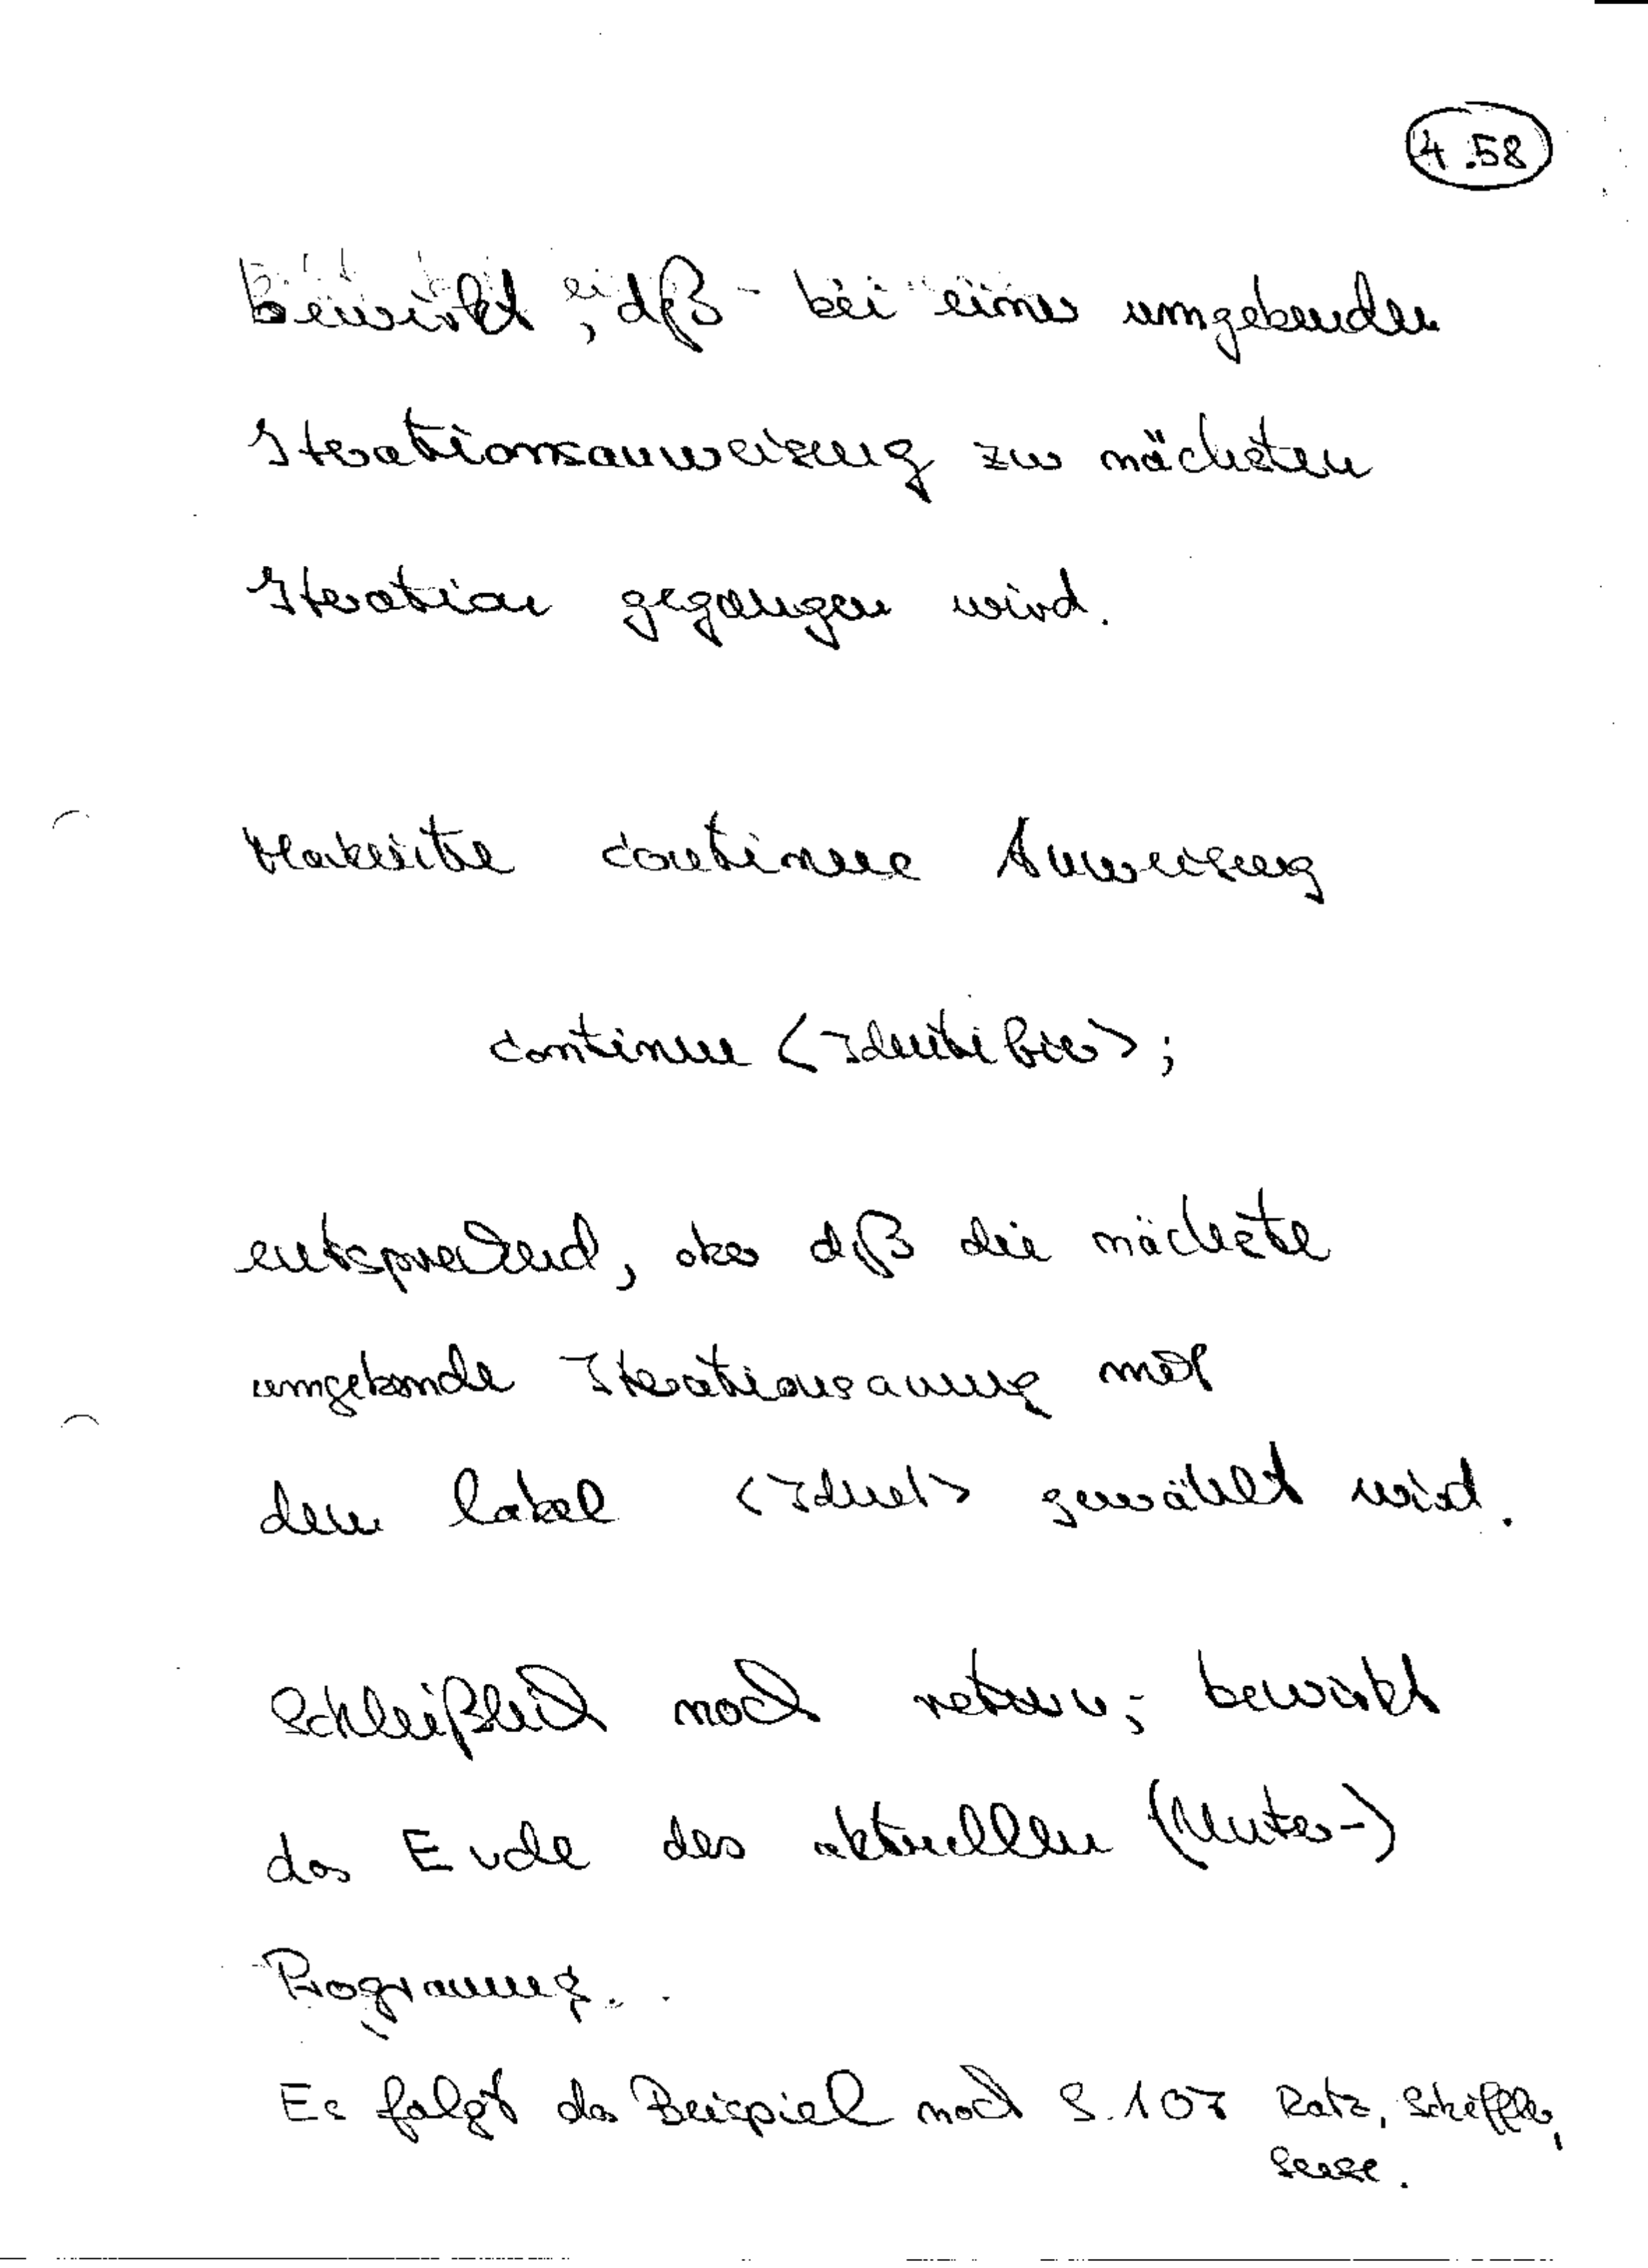 4.58
bewirkt, daß bei einer umgebenden
Iterationsanweisung zur nächsten
Iteration gegangen wird.
Markierte continue Anweisung
continue <Identifier>;
entsprechend, aber daß die nächste
umgebende Iterationsanweisung mit
dem Label <Ident> gewählt wird.
Schließlich noch return; bewirkt
das Ende des aktuellen (Unter-)
Programms.
Es folgt das Beispiel nach S. 107 Ratz, Scheffler,
Seese.